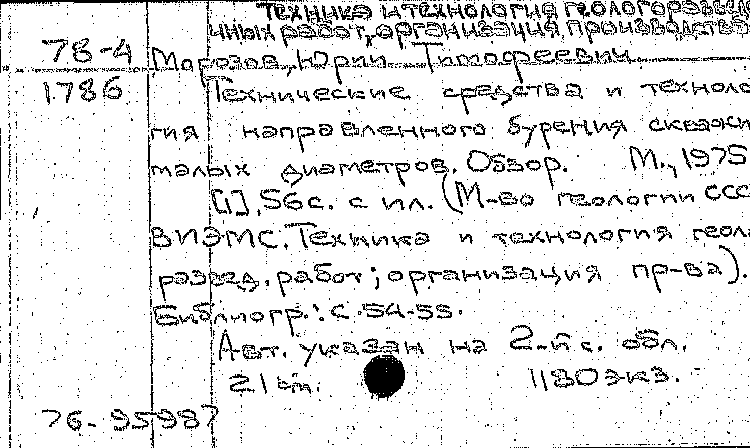 Техника и технология геологоразвед
чных работ, организация производства
78-4 Морозов, Юрий Тимофеевич
1786 Технические средства и техноло
гия направленного бурения скважи
малых диаметров. Обзор. М., 1975
[1], 56с. с ил. (М-во геологии ССС
ВИЭМС. Техника и технология геол.
развед. работ; организация пр-ва).
Библиогр.: с. 54-55.
Авт. указан на 2-й с. обл.
21 см. 1180экз.
76-95987